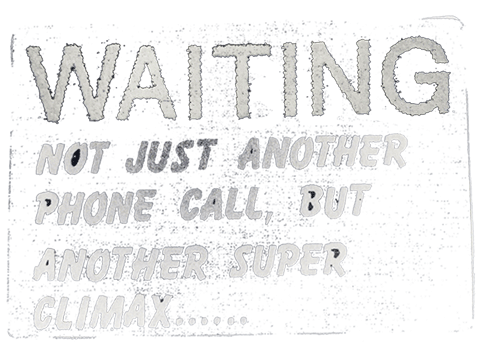 WAITING
NOT JUST ANOTHER
PHONE CALL, BUT
ANOTHER SUPER
CLIMAX......